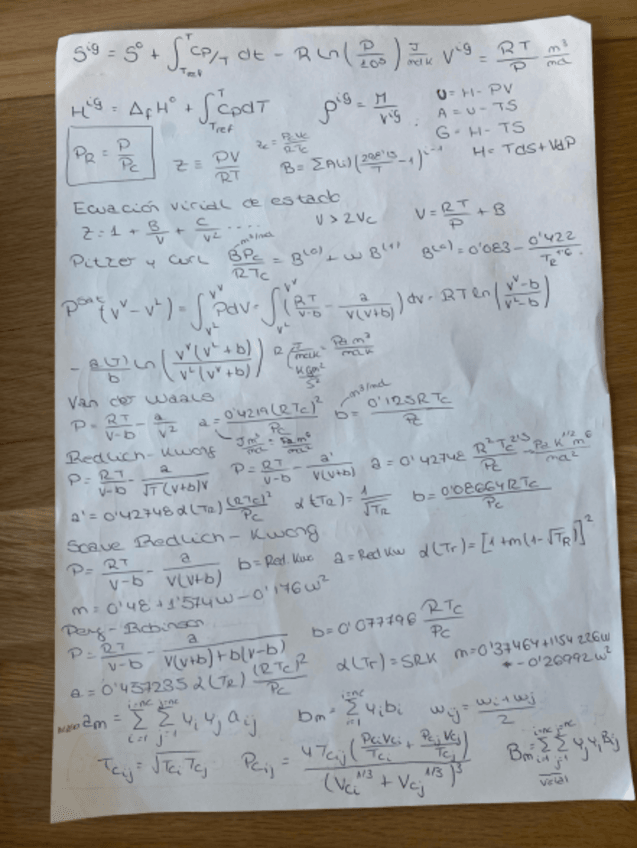 S^ig = S° + ∫_Tref^T Cp/T dt - R Ln(P/10⁵) J/molK   V^ig = RT/P m³/mol
H^ig = Δ_f H° + ∫_Tref^T CpdT   ρ^ig = M/V^ig   U = H - PV
A = U - TS
G = H - TS
P_R = P/Pc   Z ≡ PV/RT   Zc = PcVc/RTc   B = ΣA(i)(298'15/T - 1)^(i-1)   H = TdS + VdP
Ecuación virial de estado
Z = 1 + B/V + C/V² ....   V > 2Vc   V = RT/P + B
Pitzer y Curl   m³/mol   BPc/RTc = B^(0) + ω B^(1)   B^(0) = 0'083 - 0'422/T_R^1'6
P^sat (V^V - V^L) = ∫_V^L^V^V PdV = ∫_V^L^V^V (RT/(V-b) - a/(V(V+b))) dv = RT Ln((V^V-b)/(V^L-b))
- a(T)/b Ln(V^V(V^L+b)/(V^L(V^V+b)))   R   J/molK = Pa m³/molK
Van der Waals
P = RT/(V-b) - a/V²   a = 0'4219(RTc)²/Pc   b = 0'125RTc/Pc   m³/mol
Redlich-Kwong
P = RT/(V-b) - a/(√T (V+b)V)   P = RT/(V-b) - a'/(V(V+b))   a = 0'42748 R²Tc^2'5/Pc → Pa K^1/2 m⁶/mol²
a' = 0'42748 α(T_R) (RTc)²/Pc   α(T_R) = 1/√T_R   b = 0'08664RTc/Pc
Soave Redlich - Kwong
P = RT/(V-b) - a/(V(V+b))   b = Red. Kwo   a = Red Kw   α(Tr) = [1+m(1-√T_R)]²
m = 0'48 + 1'574ω - 0'176ω²
Peng - Robinson
P = RT/(V-b) - a/(V(V+b)+b(V-b))   b = 0'077796 RTc/Pc
a = 0'457235 α(T_R) (RTc)²/Pc   α(Tr) = SRK   m = 0'37464+1'54226ω
- 0'26992ω²
a_m = Σ_{i=1}^{i=nc} Σ_{j=1}^{j=nc} y_i y_j a_ij   b_m = Σ_{i=1}^{i=nc} y_i b_i   ω_ij = (ω_i+ω_j)/2
Tc_ij = √(Tc_i Tc_j)   Pc_ij = 4Tc_ij (Pc_i Vc_i/Tc_i + Pc_j Vc_j/Tc_j)/(Vc_i^1/3 + Vc_j^1/3)³   B_m = Σ_{i=1}^{i=nc} Σ_{j=1}^{j=nc} y_j y_i B_ij